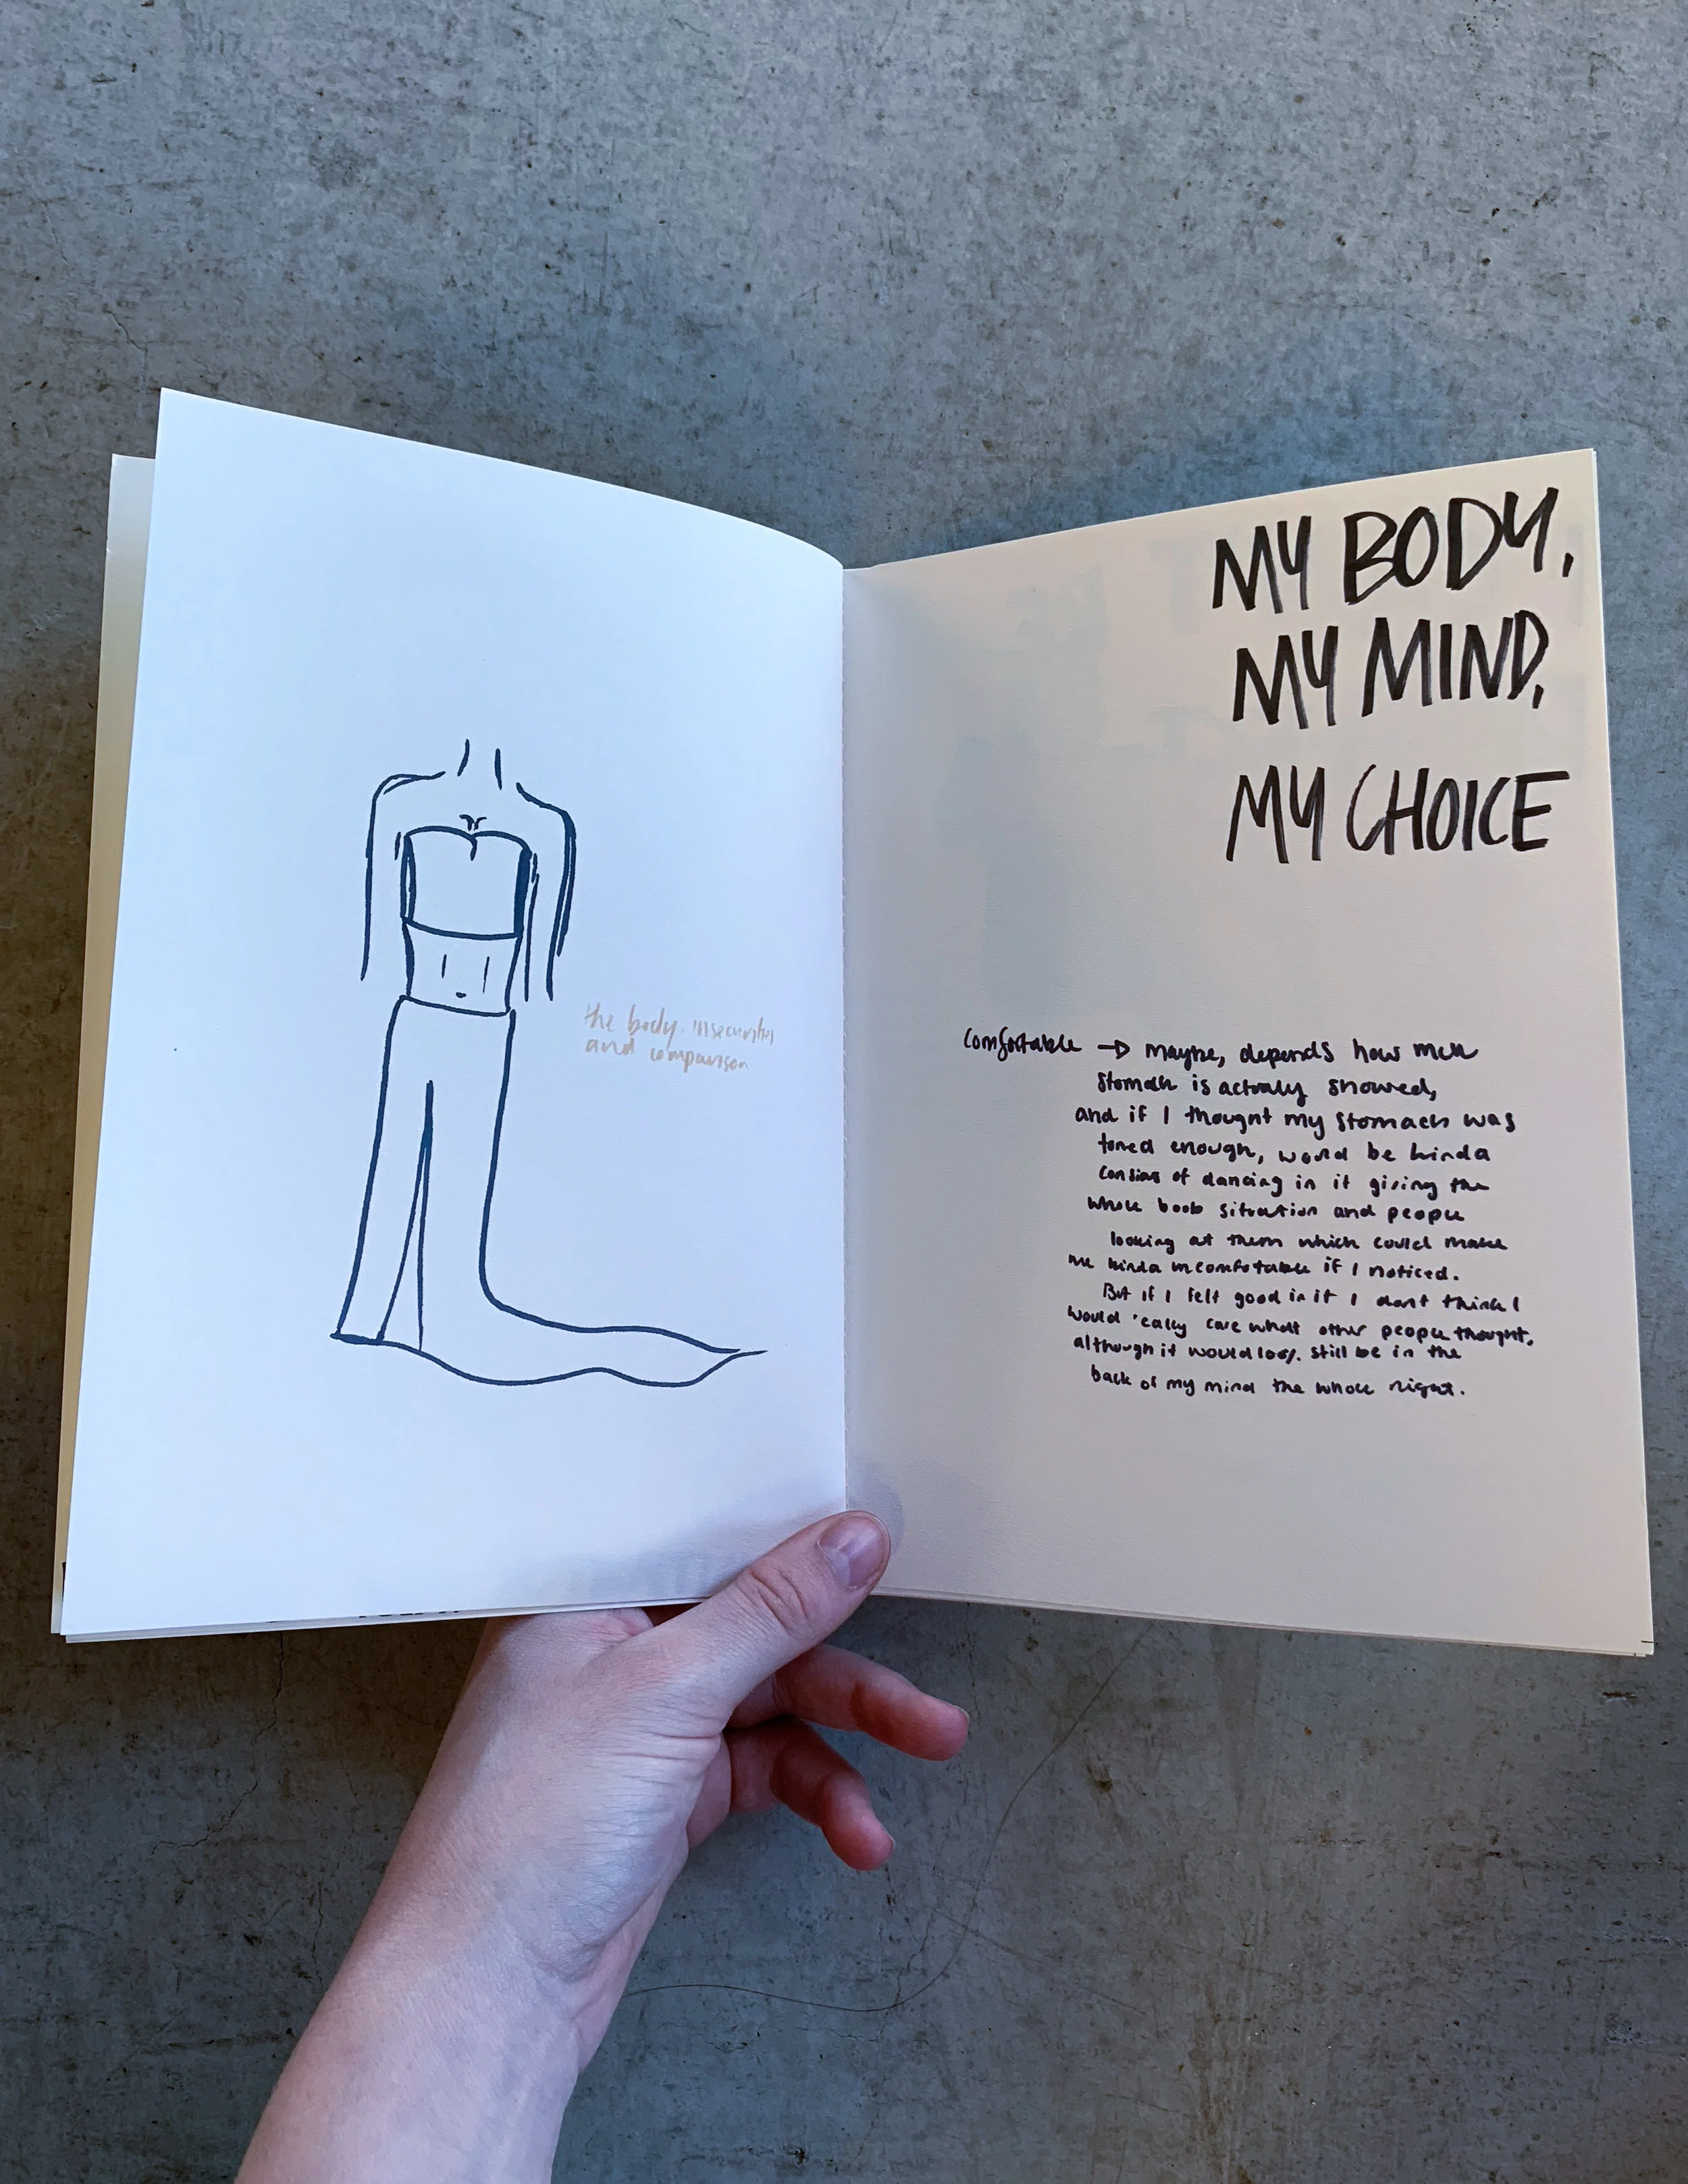 the body, insecurities
and comparison
MY BODY,
MY MIND,
MY CHOICE
Comfortable → maybe, depends how much
stomach is actually showed,
and if I thought my stomach was
toned enough, would be kinda
concious of dancing in it giving the
whole boob situation and people
looking at them which could make
me kinda uncomfortable if I noticed.
But if I felt good in it I don't think I
would really care what other people thought,
although it would 100% still be in the
back of my mind the whole night.